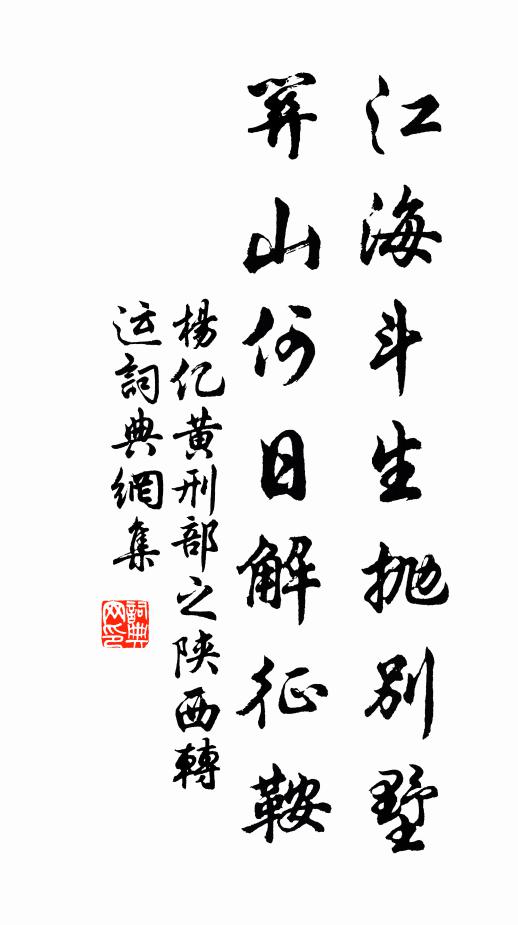 江海斗生抛別墅
關山何日解征鞍
楊亿黄刑部之陝西轉
运詞典網集
詞典网印